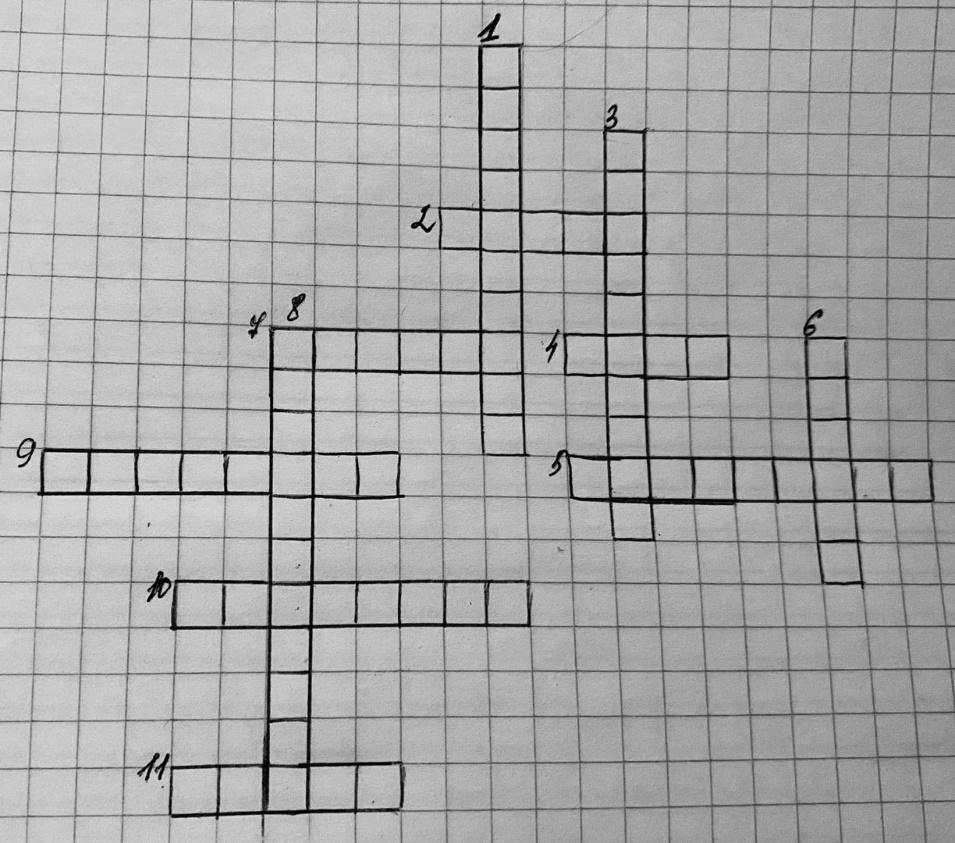 1
3
2
8
7
4
6
9
5
10
11